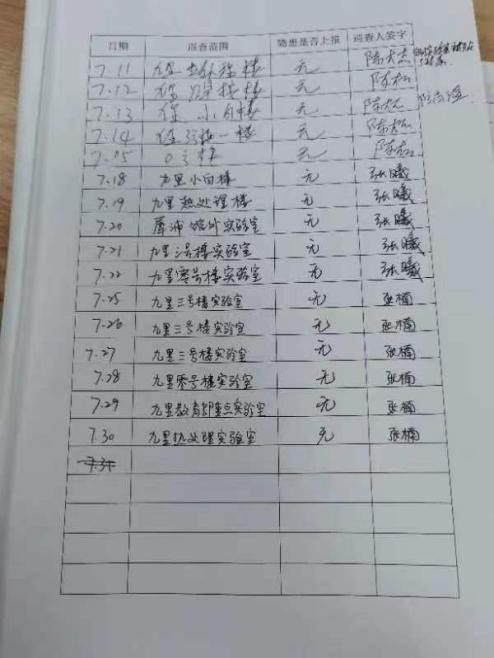 日期 巡查范围 隐患是否上报 巡查人签字
7.11 楼 无
7.12 楼 无 陈松
7.13 小白楼 无 陈松
7.14 一楼 无 陈松
7.15 无 陈松
7.18 九里小白楼 无 张曦
7.19 九里热处理楼 无 张曦
7.20 犀浦 实验室 无 张曦
7.21 九里二号楼实验室 无 张曦
7.22 九里零号楼实验室 无 张曦
7.25 九里三号楼实验室 无 张楠
7.26 九里三号楼实验室 无 张楠
7.27 九里三号楼实验室 无 张楠
7.28 九里零号楼实验室 无 张楠
7.29 九里教育部重点实验室 无 张楠
7.30 九里热处理实验室 无 张楠
7.31